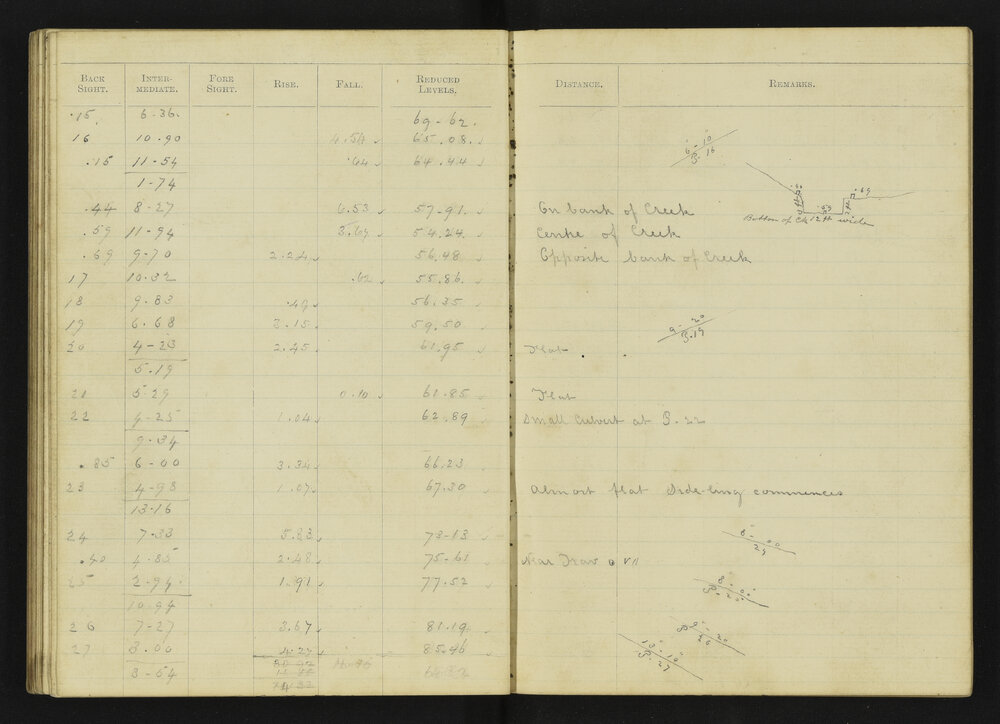 BACK SIGHT. INTER-MEDIATE. FORE SIGHT. RISE. FALL. REDUCED LEVELS.
.15 6-36. 69-62.
16 10-90 4.54 65.08.
.15 11-54 .64 64.44
1-74
.44 8-27 6.53 57-91.
.59 11-94 3.67 54.24.
.69 9-70 2.24 56.48
17 10.32 .62 55.86.
18 9.83 .49 56.35
19 6.68 3.15 59.50
20 4-23 2.45 61.95
5.19
21 5-29 0.10 61.85
22 4-25 1.04 62.89
9.34
.85 6-00 3.34 66.23
23 4-93 1.07 67.30
13-16
24 7-33 5.83 73-13
.40 4.85 2.48 75-61
25 2-94 1.91 77.52
10.94
26 7-27 3.67 81.19
27 3.00 4.27 85.46
3-54
DISTANCE. REMARKS.
6-10
P.16
.69
Bottom of Ck 12ft wide
On bank of Creek
Centre of Creek
Opposite bank of Creek
9-20
P.19
Flat
Flat
Small Culvert at P.22
Almost flat Side-ling commences
6-00
24
Near Trav VII
8-00
P-25
9-20
26
13-10
P-27